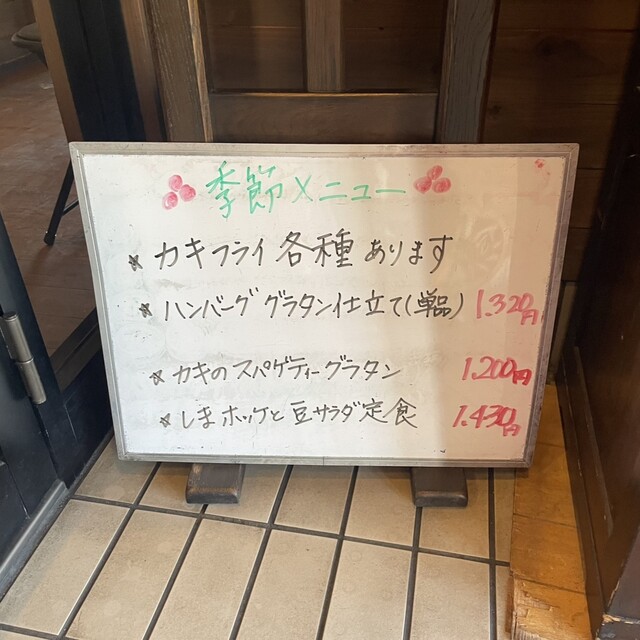 季節メニュー
★カキフライ各種あります
★ハンバーググラタン仕立て(単品) 1.320円
★カキのスパゲティーグラタン 1.200円
★しまホッケと豆サラダ定食 1.430円